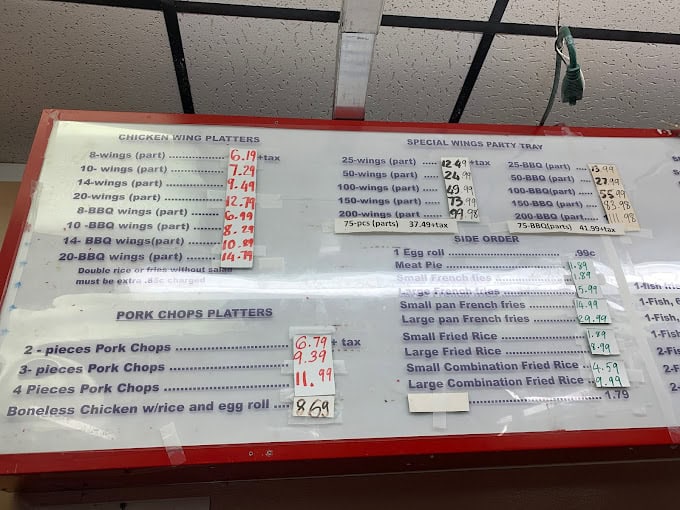 CHICKEN WING PLATTERS
8-wings (part) 6.19 +tax
10- wings (part) 7.29
14-wings (part) 9.49
20-wings (part) 12.79
8-BBQ wings (part) 6.99
10 -BBQ wings (part) 8.29
14- BBQ wings(part) 10.89
20-BBQ wings (part) 14.79
Double rice or fries without salad
must be extra .85c charged
PORK CHOPS PLATTERS
2 - pieces Pork Chops 6.79 + tax
3- pieces Pork Chops 9.39
4 Pieces Pork Chops 11.99
Boneless Chicken w/rice and egg roll 8.59
SPECIAL WINGS PARTY TRAY
25-wings (part) 12.49 +tax
50-wings (part) 24.99
100-wings (part) 49.99
150-wings (part) 73.99
200-wings (part) 99.98
75-pcs (parts) 37.49+tax
25-BBQ (part) 13.99
50-BBQ (part) 27.99
100-BBQ(part) 55.99
150-BBQ (part) 83.98
200-BBQ (part) 111.98
75-BBQ(parts) 41.99+tax
SIDE ORDER
1 Egg roll .99c
Meat Pie 1.89
Small French fies 1.89
Large French fries 5.99
Small pan French fries 14.99
Large pan French fries 29.99
Small Fried Rice 1.89
Large Fried Rice 8.99
Small Combination Fried Rice 4.59
Large Combination Fried Rice 9.99
1.79
1-fish
1-Fish, 6
1-Fish,
1-Fis
2-Fi
2-F
2-